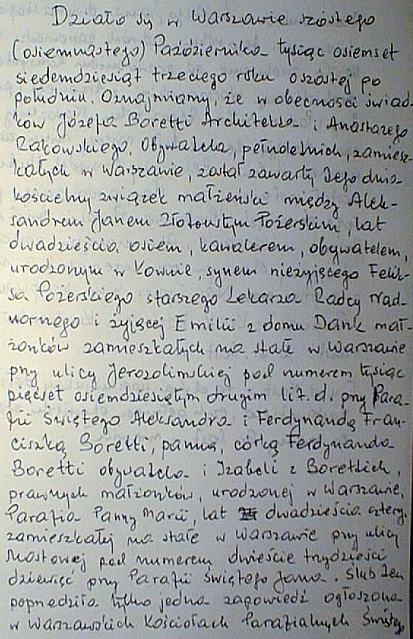 Działo się w Warszawie szóstego
(osiemnastego) Października tysiąc osiemset
siedemdziesiąt trzeciego roku o szóstej po
południu. Oznajmiamy, że w obecności świad-
ków Józefa Boretti Architekta i Anastazego
Rakowskiego, Obywatela, pełnoletnich, zamiesz-
kałych w Warszawie, został zawarty tego dnia
kościelny związek małżeński między Alek-
sandrem Janem Złotowstym Pożerskim, lat
dwadzieścia osiem, kawalerem, obywatelem,
urodzonym w Kownie, synem nieżyjącego Felik-
sa Pożerskiego starszego Lekarza Radcy nad-
wornego i żyjącej Emilii z domu Dank mał-
żonków zamieszkałych na stałe w Warszawie
przy ulicy Jerozolimskiej pod numerem tysiąc
pięćset osiemdziesiątym drugim lit. d. przy Para-
fii Świętego Aleksandra i Ferdynandą Fran-
ciszką Boretti, panną, córką Ferdynanda
Boretti obywatela i Izabeli z Borettich,
prawnych małżonków, urodzonej w Warszawie,
Parafia Panny Marii, lat dwadzieścia cztery,
zamieszkałej na stałe w Warszawie przy ulicy
Mostowej pod numerem dwieście trzydzieści
dziewięć przy Parafii świętego Jana. Ślub ten
poprzedziła tylko jedna zapowiedź ogłoszona
w Warszawskich Kościołach Parafialnych Święty